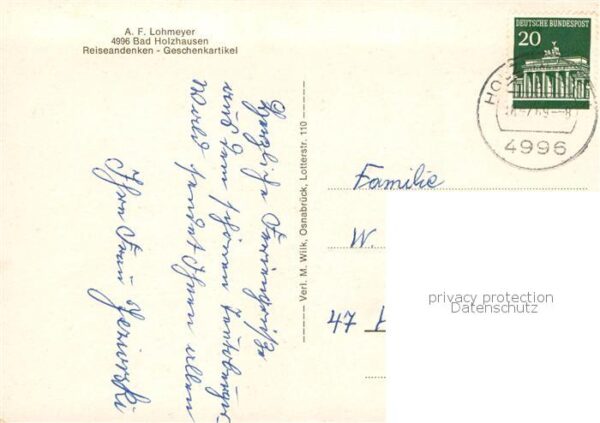 A. F. Lohmeyer
4996 Bad Holzhausen
Reiseandenken - Geschenkartikel
Herzliche Feriengrüße
aus dem schönen Teutoburger
Wald sendet Ihnen allen
Ihre Frau
Verl. M. Wilk, Osnabrück, Lotterstr. 110
DEUTSCHE BUNDESPOST
20
HO
4996
Familie
W.
47
privacy protection
Datenschutz